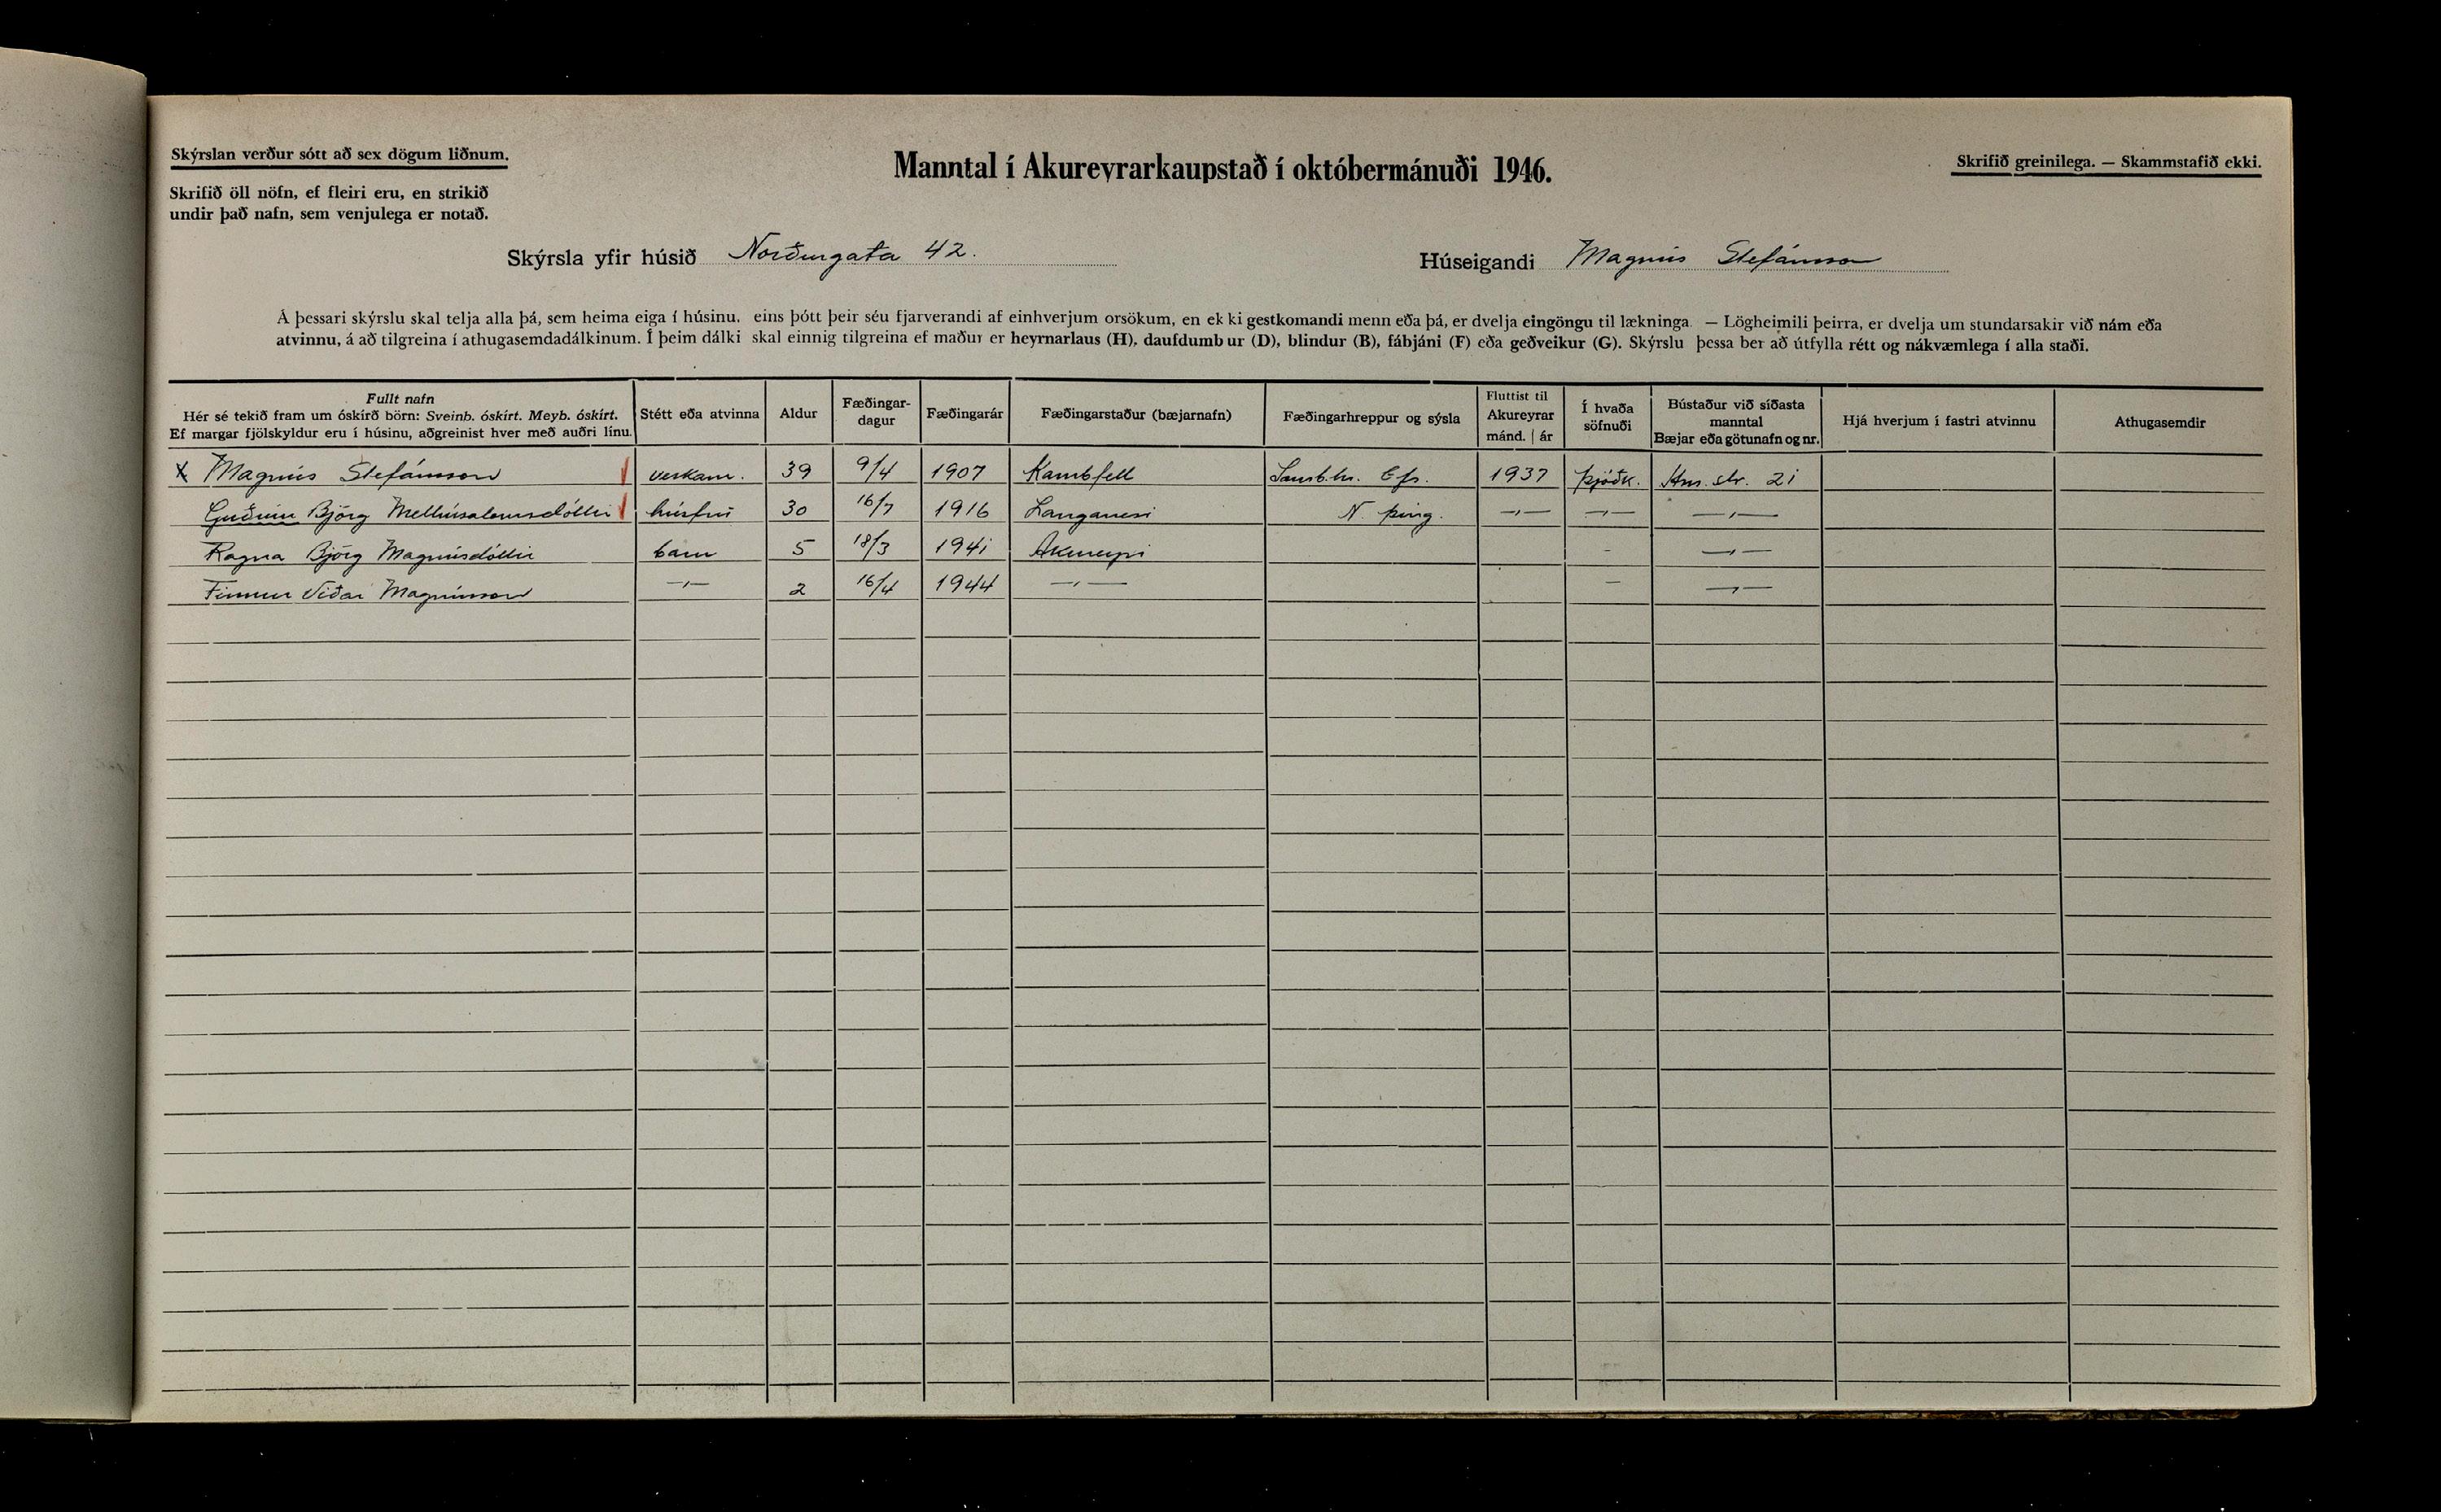 Skýrslan verður sótt að sex dögum liðnum.
Skrifið öll nöfn, ef fleiri eru, en strikið
undir það nafn, sem venjulega er notað.
Manntal í Akureyrarkaupstað í októbermánuði 1946.
Skrifið greinilega. — Skammstafið ekki.
Skýrsla yfir húsið Norðurgata 42.
Húseigandi Magnús Stefánsson
Á þessari skýrslu skal telja alla þá, sem heima eiga í húsinu, eins þótt þeir séu fjarverandi af einhverjum orsökum, en ekki gestkomandi menn eða þá, er dvelja eingöngu til lækninga. — Lögheimili þeirra, er dvelja um stundarsakir við nám eða
atvinnu, á að tilgreina í athugasemdadálkinum. Í þeim dálki skal einnig tilgreina ef maður er heyrnarlaus (H), daufdumbur (D), blindur (B), fábjáni (F) eða geðveikur (G). Skýrslu þessa ber að útfylla rétt og nákvæmlega í alla staði.
Fullt nafn
Hér sé tekið fram um óskírð börn: Sveinb. óskírt. Meyb. óskírt.
Ef margar fjölskyldur eru í húsinu, aðgreinist hver með auðri línu.
Stétt eða atvinna
Aldur
Fæðingar-
dagur
Fæðingarár
Fæðingarstaður (bæjarnafn)
Fæðingarhreppur og sýsla
Fluttist til
Akureyrar
mánd. | ár
Í hvaða
söfnuði
Bústaður við síðasta
manntal
Bæjar eða götunafn og nr.
Hjá hverjum í fastri atvinnu
Athugasemdir
x Magnús Stefánsson verkam. 39 9/4 1907 Kambfell Saurb.hr. Efs. 1937 Þjóðk. str. 21
Guðrún Björg Methúsalemsdóttir húsfrú 30 16/7 1916 Langanesi N. Þing. —„— —„— —„—
Ragna Björg Magnúsdóttir barn 5 18/3 1941 Akureyri - —„—
Finnur Viðar Magnússon —„— 2 16/4 1944 —„— — —„—